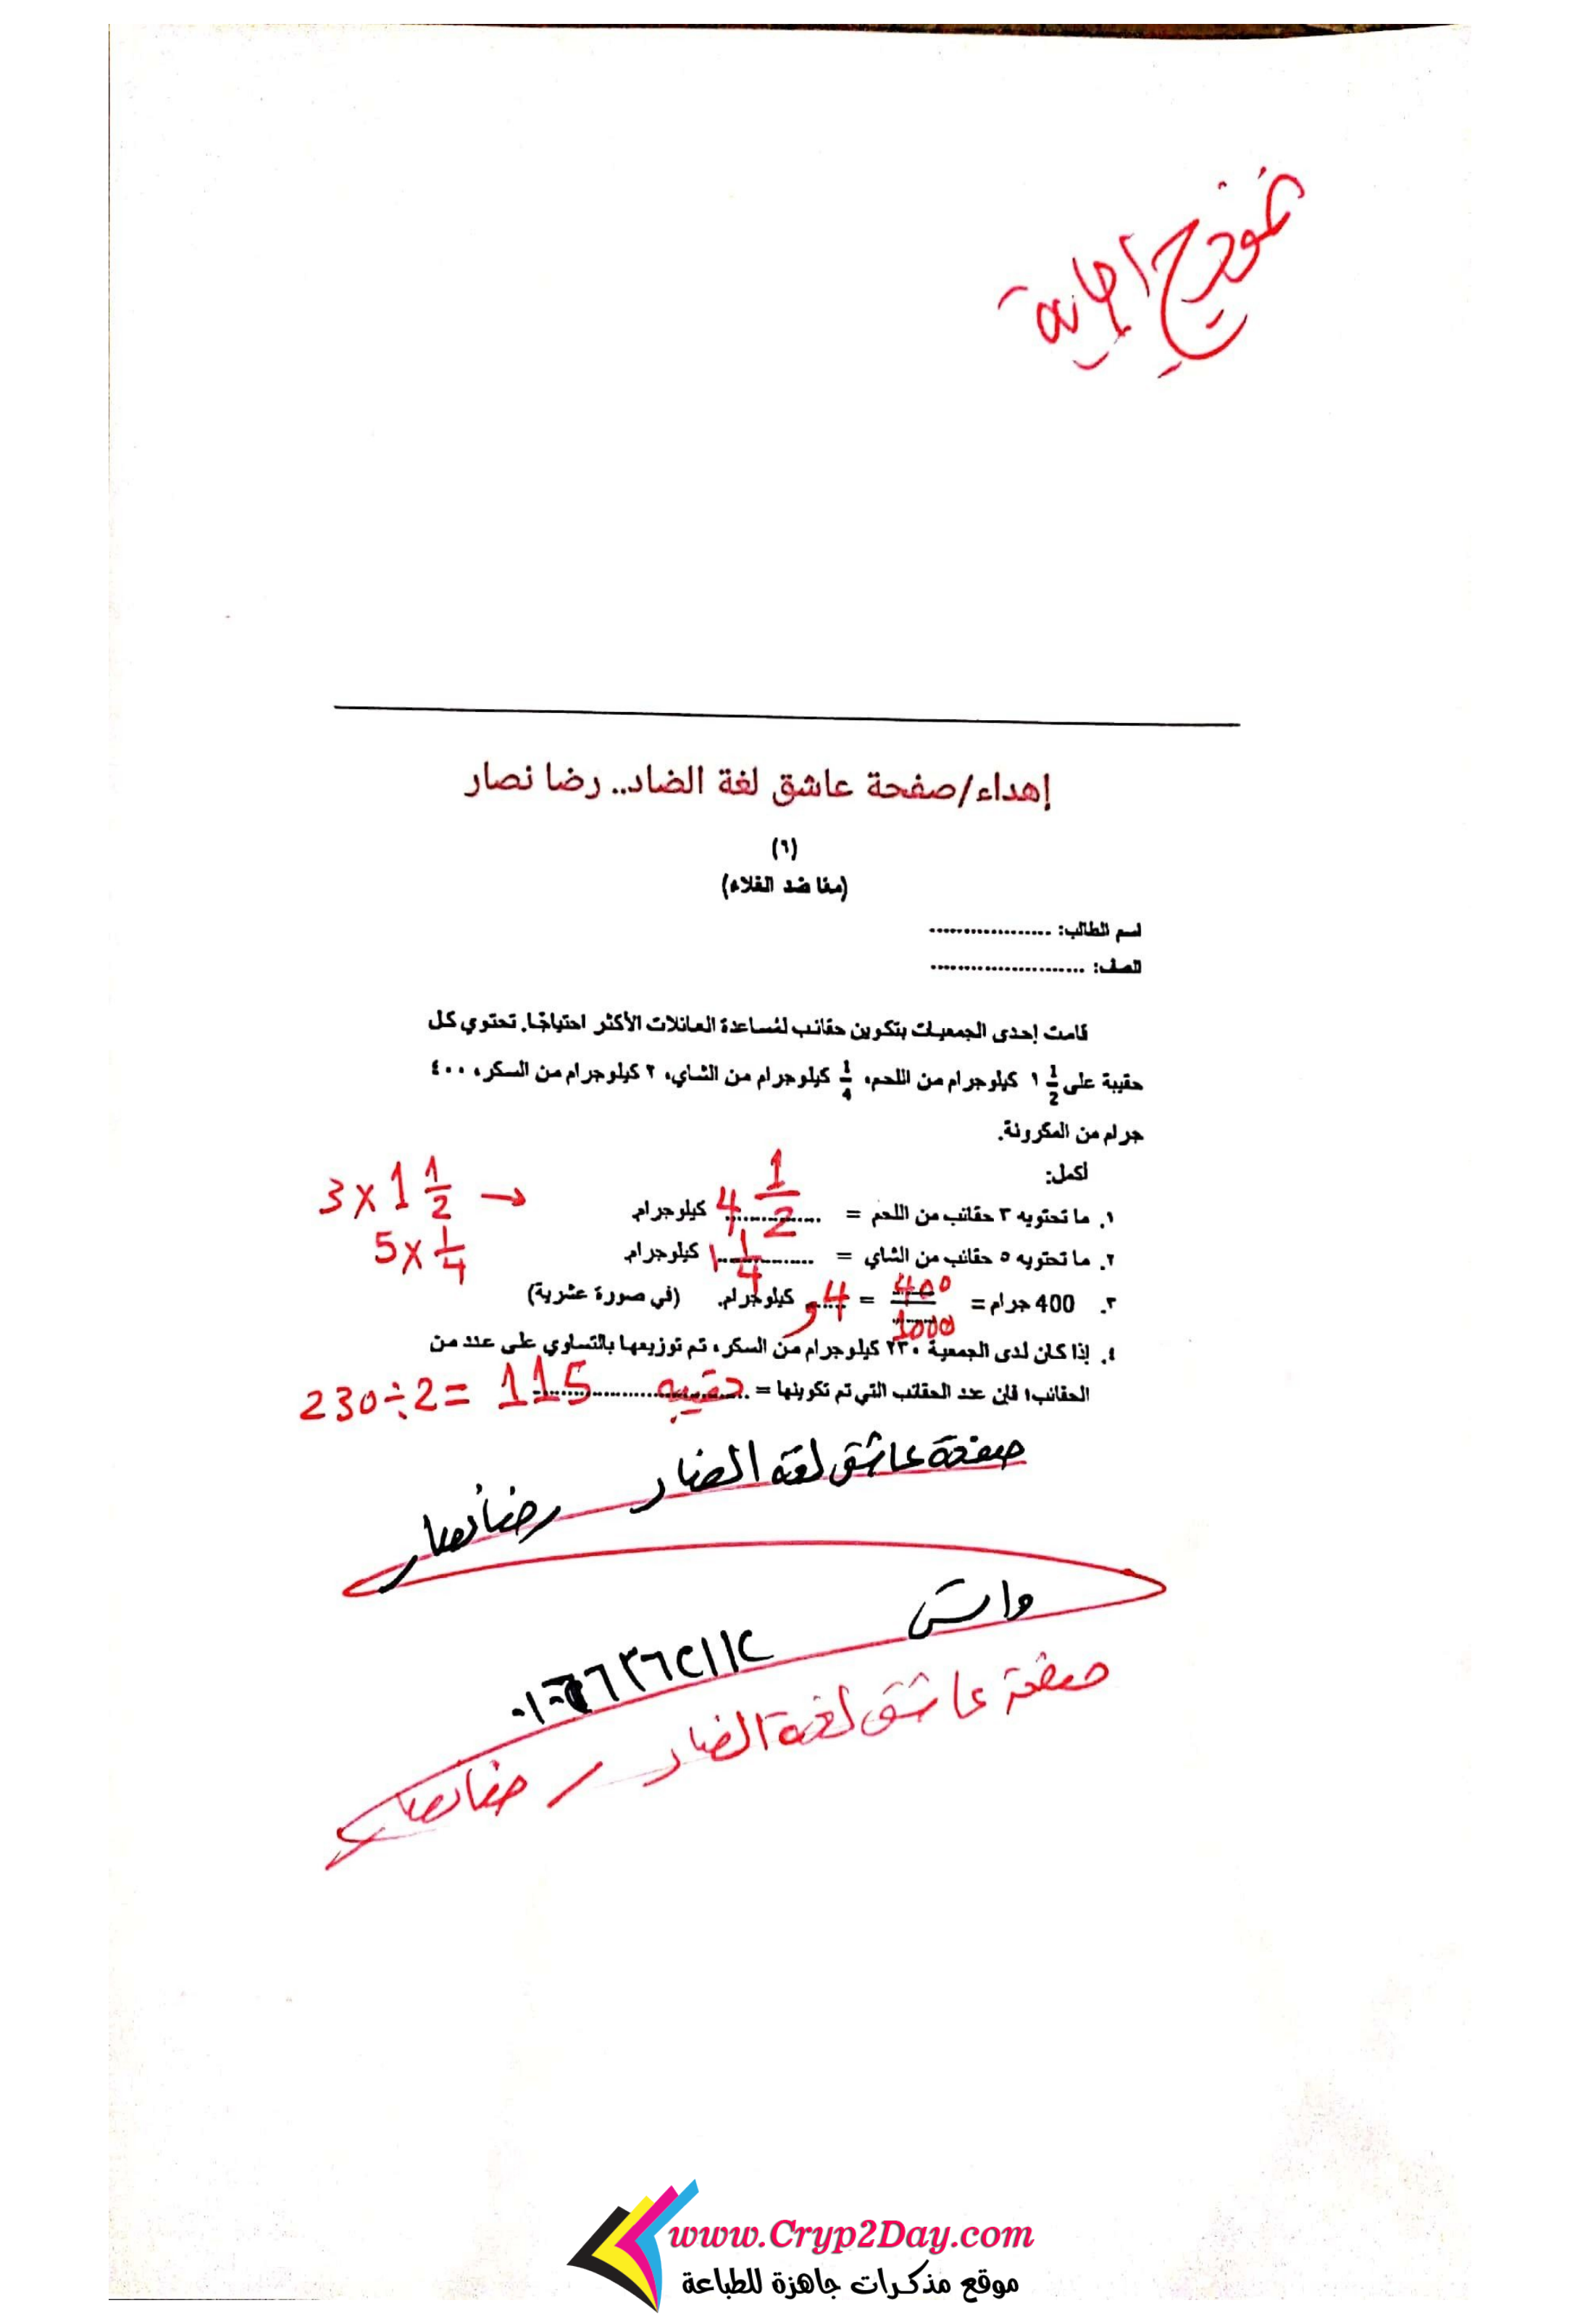 نموذج إجابة
إهداء/صفحة عاشق لغة الضاد.. رضا نصار
(٦)
(معًا ضد الغلاء)
اسم الطالب: ..................
الصف: .......................
قامت إحدى الجمعيات بتكوين حقائب لمساعدة العائلات الأكثر احتياجًا. تحتوي كل
حقيبة على 1/2 ١ كيلوجرام من اللحم، 1/4 كيلوجرام من الشاي، ٢ كيلوجرام من السكر، ٤٠٠
جرام من المكرونة.
أكمل:
١. ما تحتويه ٣ حقائب من اللحم = 4 1/2 كيلوجرام. 3 x 1 1/2 →
٢. ما تحتويه ٥ حقائب من الشاي = 1 1/4 كيلوجرام. 5 x 1/4
٣. 400 جرام = 400/1000 = و4 كيلوجرام. (في صورة عشرية)
٤. إذا كان لدى الجمعية ٢٣٠ كيلوجرام من السكر، تم توزيعها بالتساوي على عدد من
الحقائب؛ فإن عدد الحقائب التي تم تكوينها = حقيبه 230÷2= 115
صفحة عاشق لغة الضاد رضا نصار
واتس
صفحة عاشق لغة الضاد رضا نصار
www.Cryp2Day.com
موقع مذكرات جاهزة للطباعة